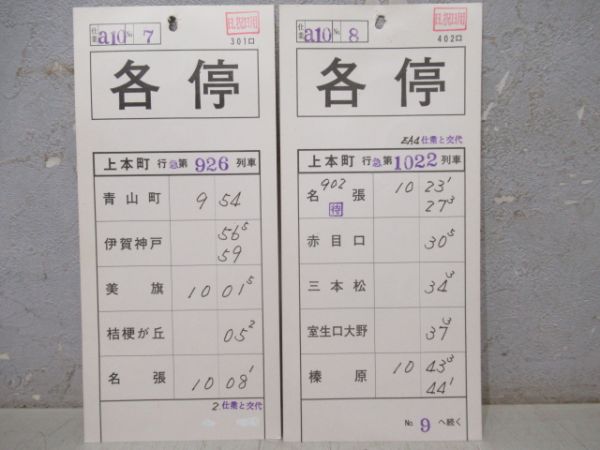 仕業 a10 No. 7
日、祝日用
301口
各停
上本町 行急第 926 列車
青山町 9 54
伊賀神戸 56⁵
59
美旗 10 01⁵
桔梗が丘 05²
名張 10 08¹
2.仕業と交代
仕業 a10 No. 8
日、祝日用
402口
各停
EA4仕業と交代
上本町 行急第 1022 列車
902
名張 10 23¹
待 27³
赤目口 30⁵
三本松 34³
室生口大野 37³
榛原 10 43³
44¹
No. 9 へ続く